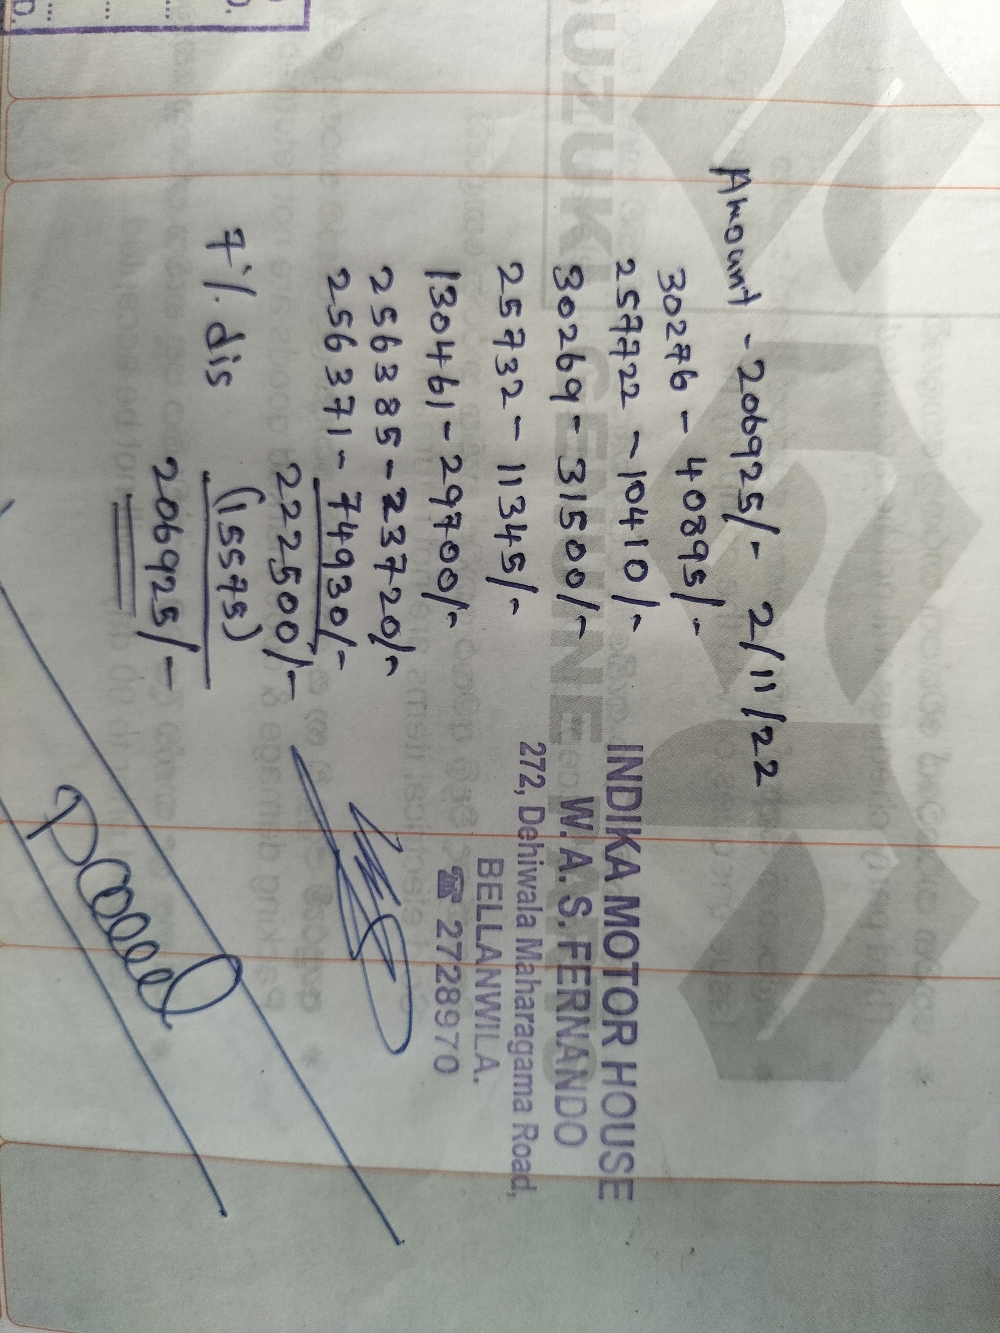 Amount - 206925/- 2/11/22
30276 - 40895/-
257722 - 10410/-
30269 - 31500/-
25732 - 11345/-
130461 - 29700/-
256385 - 23720/-
256371 - 74930/-
222500/-
7% dis (15575)
206925/-
INDIKA MOTOR HOUSE
W. A. S. FERNANDO
272, Dehiwala Maharagama Road,
BELLANWILA.
☎ 2728970
SUZUKI GENUINE PARTS